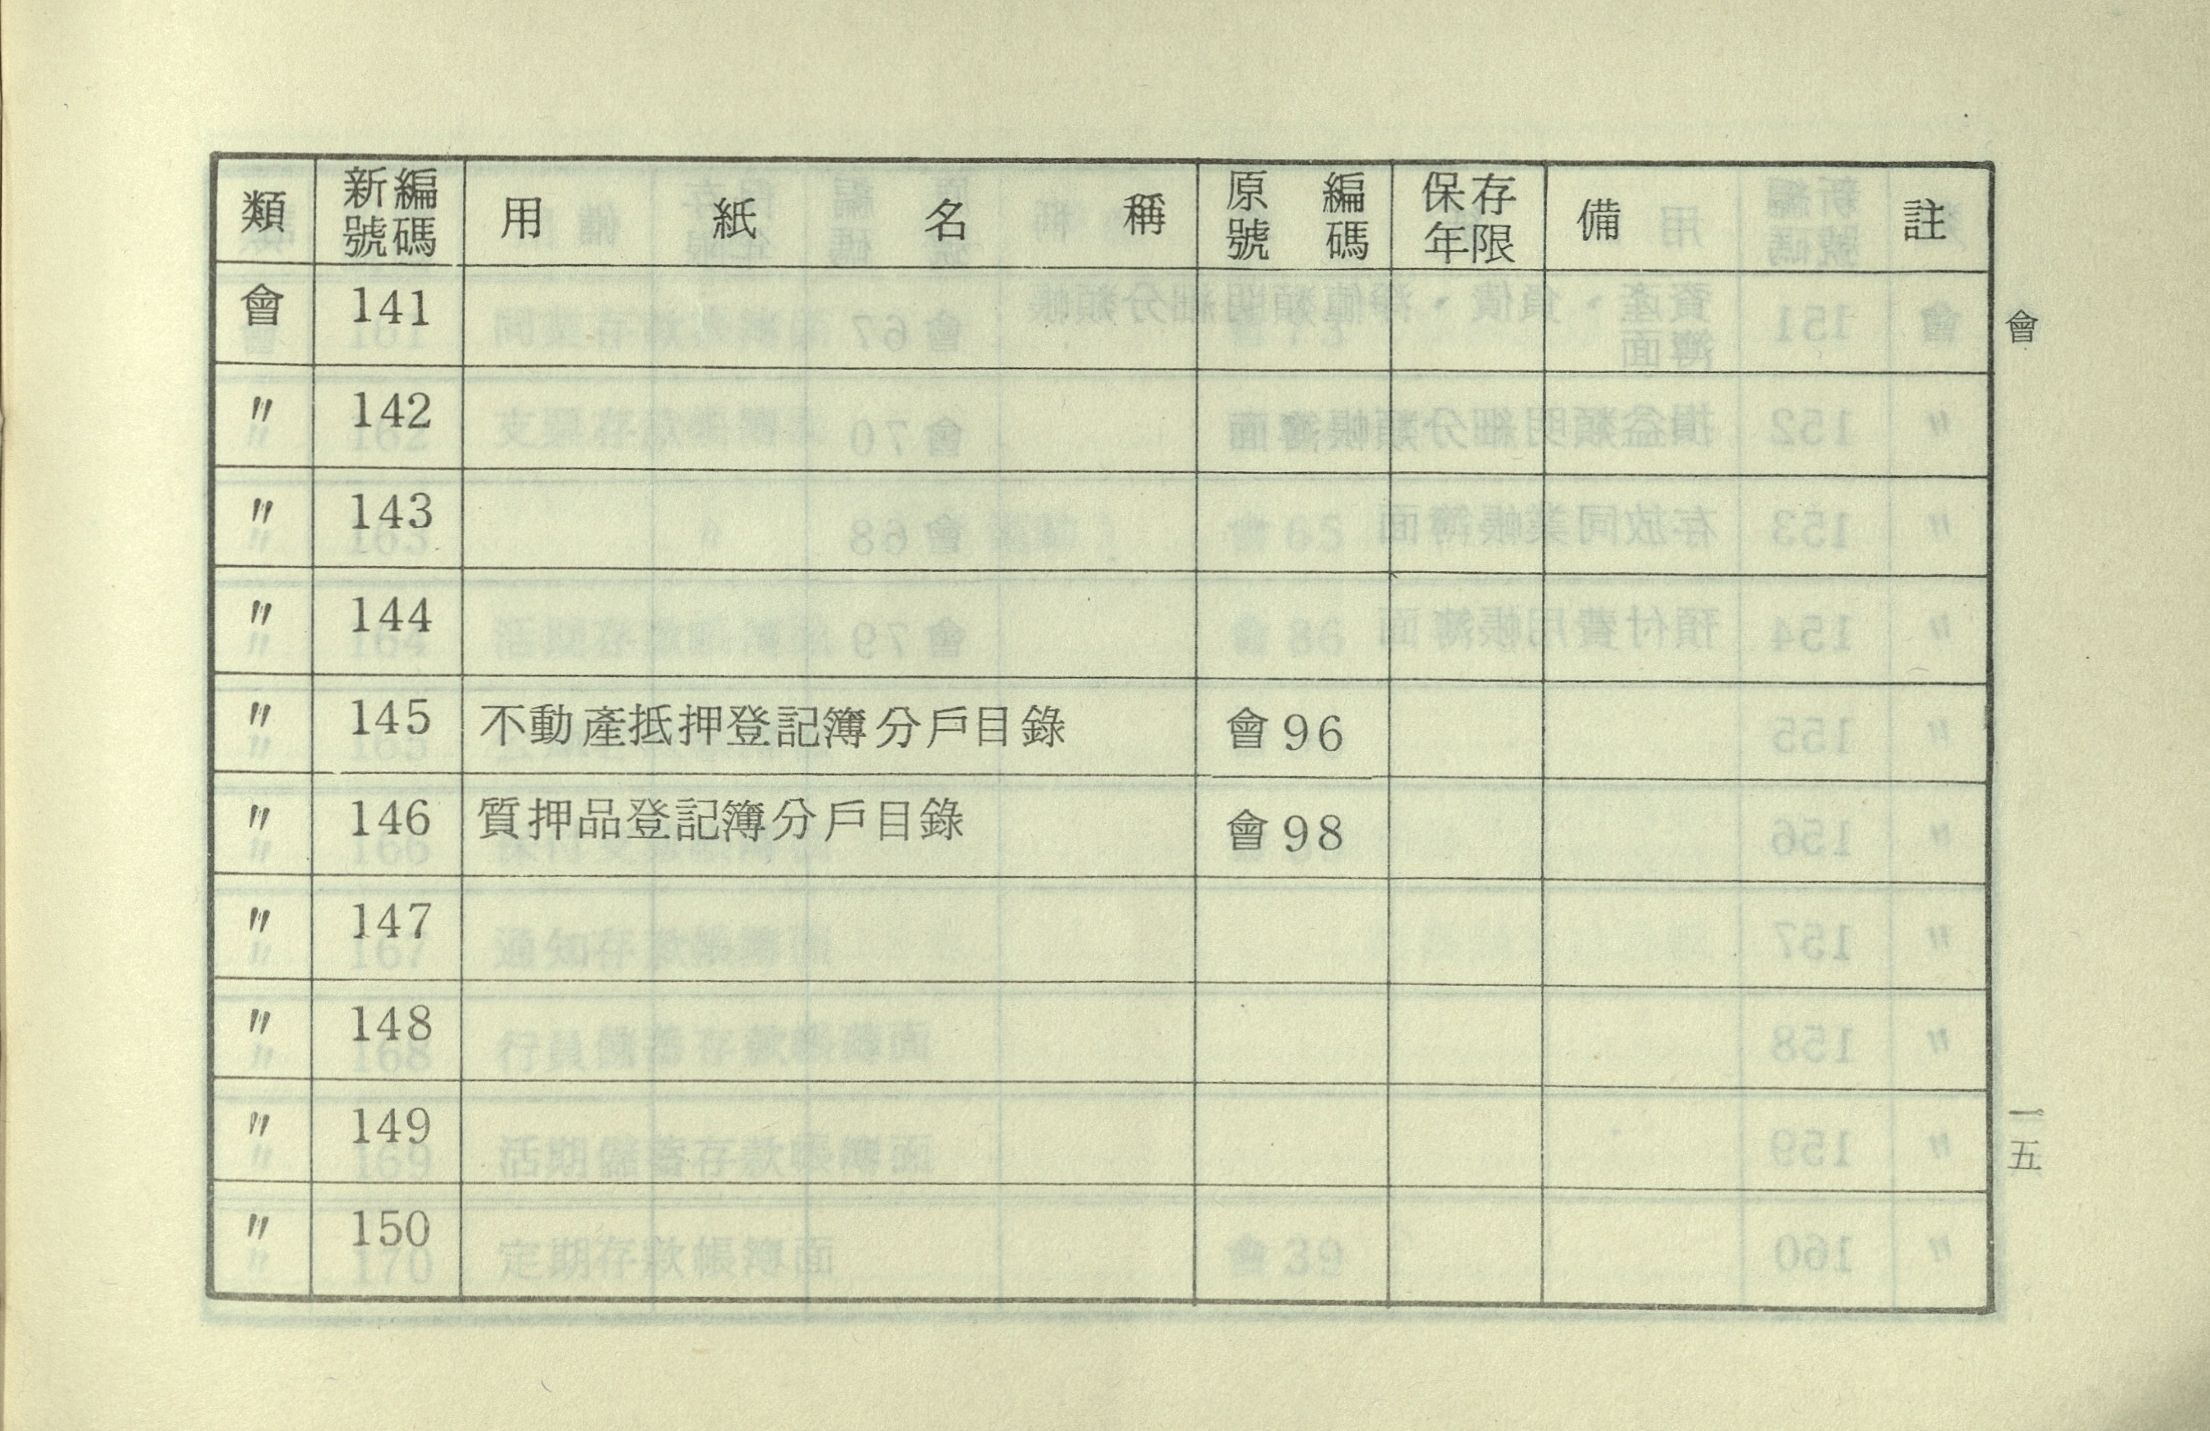 類 新編號碼 用紙名稱 原編號碼 保存年限 備註
會 141
〃 142
〃 143
〃 144
〃 145 不動產抵押登記簿分戶目錄 會96
〃 146 質押品登記簿分戶目錄 會98
〃 147
〃 148
〃 149
〃 150
會
一五